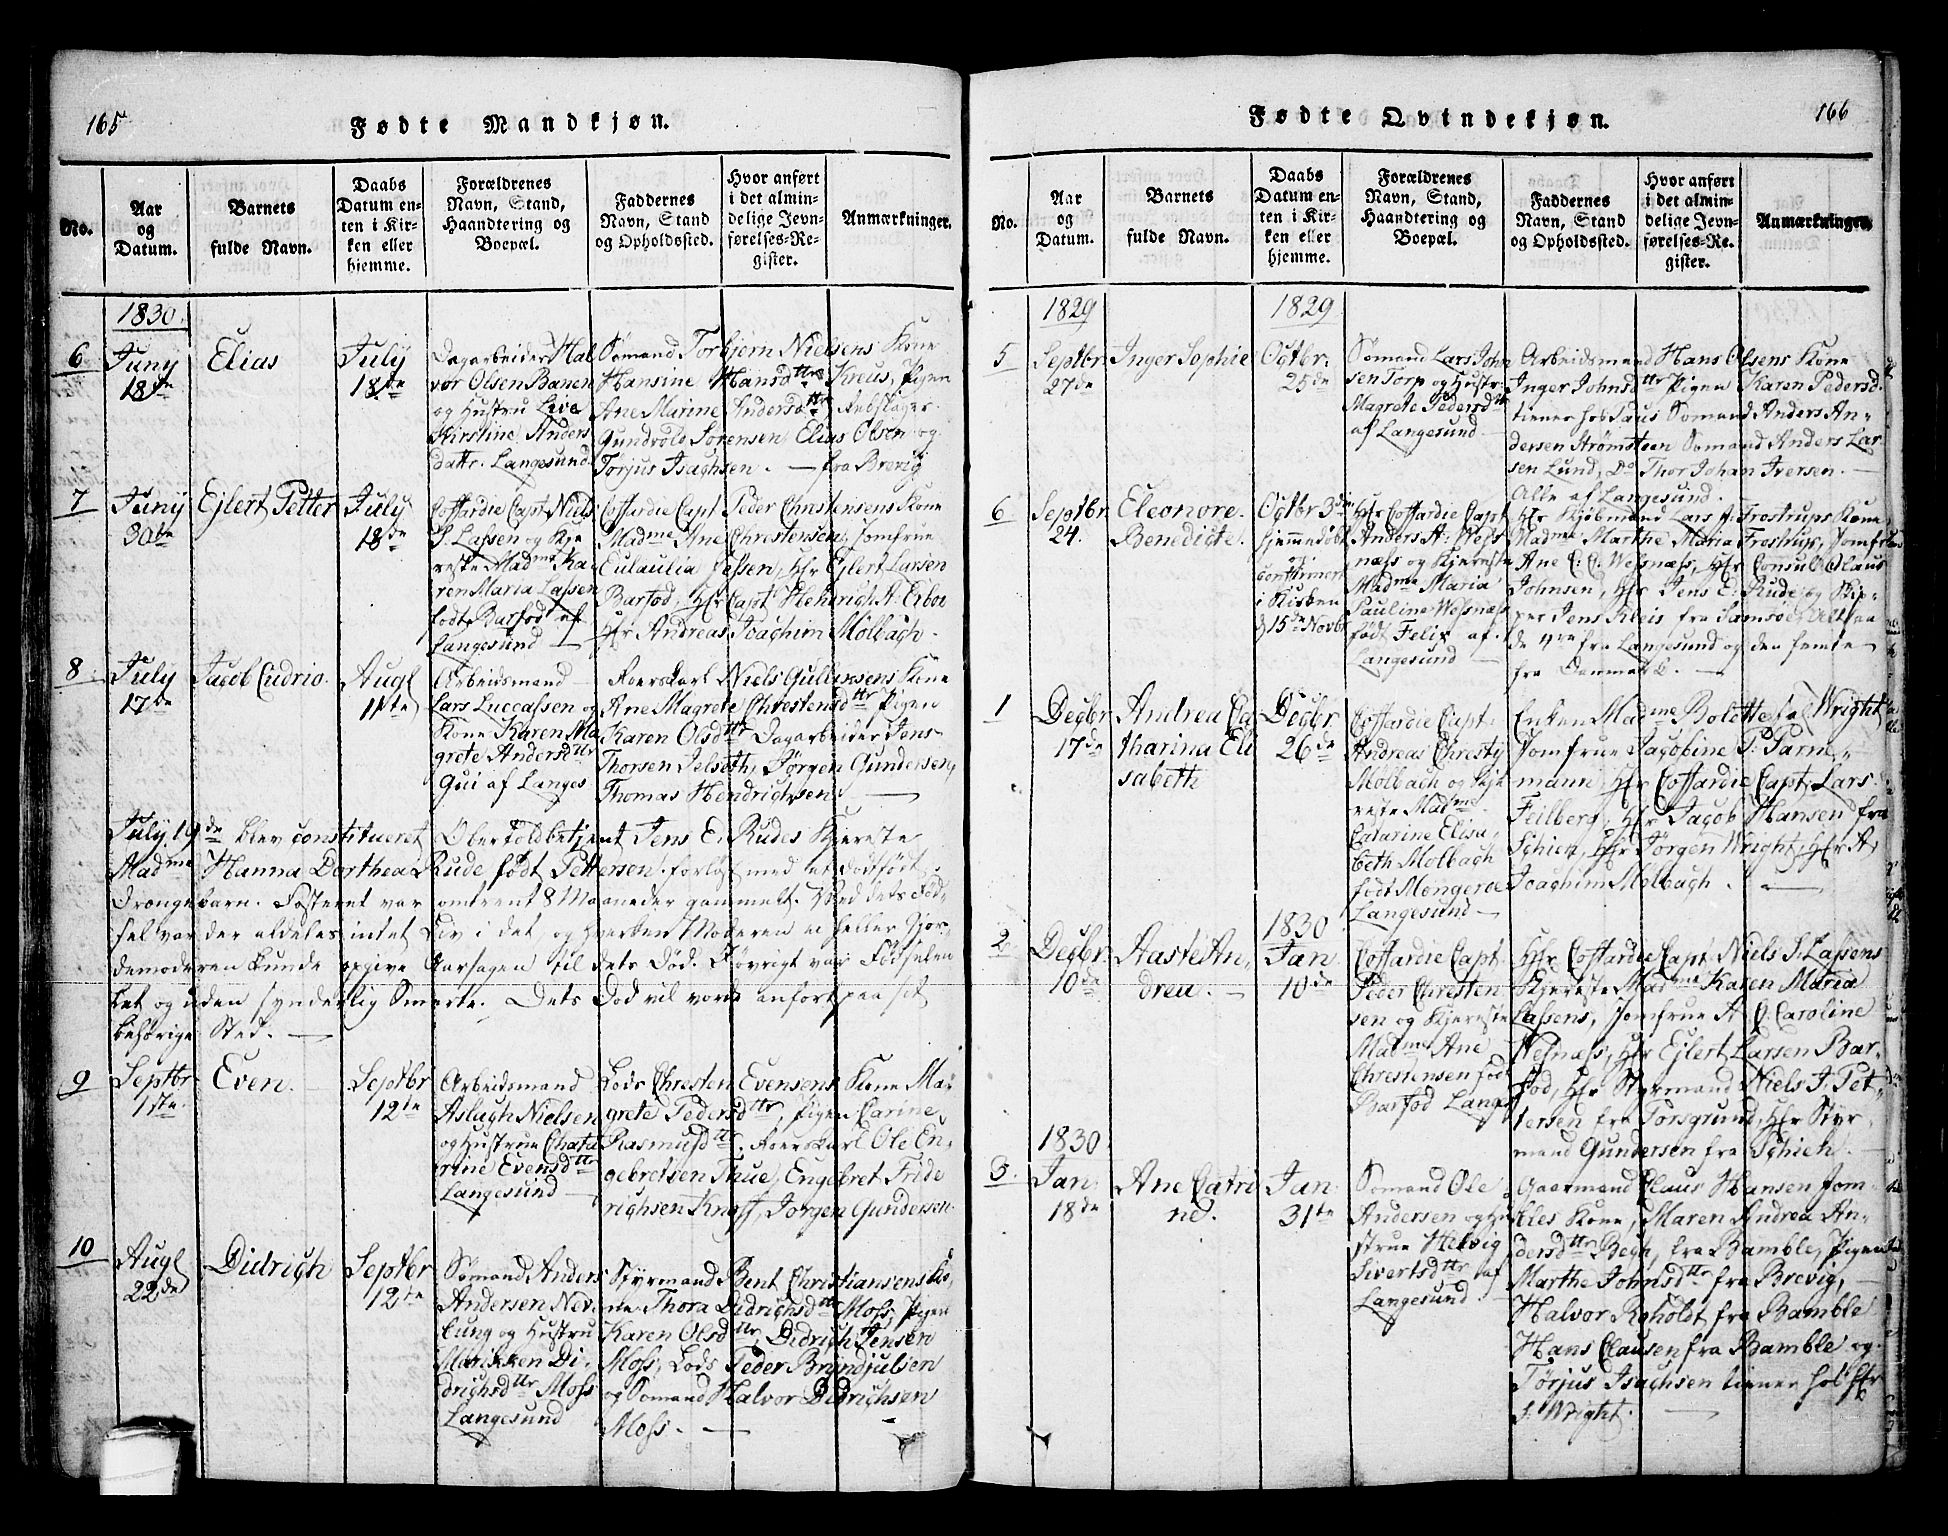 165
Fødte Mandkjøn.
No.
Aar
og
Datum.
Barnets
fulde Navn.
Daabs
Datum en-
ten i Kir-
ken eller
hjemme.
Forældrenes
Navn, Stand,
Haandtering og
Boepæl.
Faddernes
Navn, Stand
og Opholdssted.
Hvor anført
i det almin-
delige Jevn-
førelses-Re-
gister.
Anmærkninger.
1830
6
Juny
18de
Elias
July
18de
Dagarbeider Hal
vor Olsen Banen
og Hustru Live
Kirstine Anders
dattr. Langesund
Sømand Torbjørn Nielsens Kone
Hansine Hansdttr Kreus, Pigen
Ane Marine Andersdttr Rebslager
Gundrold Sørensen Elias Olsen og
Torjus Isachsen. — fra Brevig
7
Juny
30te
Ejlert Petter
July
18de
Coffardie Capt Niels
S. Lassen og Kje
reste Madme Ka-
ren Maria Lassen
født Barfod af
Langesund —
Coffardie Capt Peder Christensens Kone
Madme Ane Christensen, Jomfrue
Eulaulia Jessen, Hr Ejlert Larsen
Barfod, Hr Capt Heinrich A. Erboe
Hr Andreas Joachim Mölbach.
8
July
17de
Jacob Cudrio.
Augl
11te
Arbeidsmand
Lars Luccassen og
Kone Karen Ma
grete Andersdttr
Gui af Langes
Roerskarl Niels Gullixsens Kone
Ane Magrete Chrestensdttr Pigen
Karen Olsdttr Dagarbeider Jens
Thorsen Selseth, Jörgen Gundersen,
Thomas Hendrichsen —
July 19de blev constitueret Overtoldbetjent Jens E. Rudes Kjereste
Madme Hanna Dorthea Rude født Pettersen forløst med et dødfødt
Drengebarn. Fosteret var omtrent 8 Maaneder gammelt. Ved dets Fød-
sel var der aldeles intet Liv i det, og hverken Moderen ei heller Gjor-
demoderen kunde opgive Aarsagen til dets Død. Iøvrigt var Fødselen
let og uden synderlig Smerte. Dets Død vil vorde anført paa sit
behørige Sted. —
9
Septbr
1ste
Even.
Septbr
12te
Arbeidsmand
Aslagh Nielsen
og Hustrue Chata
rine Evensdttr
Langesund —
Lods Chresten Evensens Kone Ma-
grete Pedersdttr, Pigen Carine
Rasmusdttr. Roerskarl Ole En-
gebretsen Thue, Engebret Fride
richsen Knoff, Jörgen Gundersen
10
Augl
22de
Didrich
Septbr
12te
Sømand Anders
Andersen Nev
lung og Hustru
Marikken Di-
drichsdttr Moss
Langesund
Styrmand Bent Christiansens Ko-
ne Thora Didrichsdttr Moss, Pigen
Karen Olsdttr, Didrich Jensen
Moss, Lods Peder Bryndjulsen
og Sømand Halvor Didrichsen
Moss. —
Fødte Qvindekjøn.
166
No.
Aar
og
Datum.
Barnets
fulde Navn.
Daabs
Datum en-
ten i Kir-
ken eller
hjemme.
Forældrenes
Navn, Stand,
Haandtering og
Boepæl.
Faddernes
Navn, Stand
og Opholdssted.
Hvor anført
i det almin-
delige Jevn-
førelses-Re-
gister.
Anmærkninger
1829
1829
5
Septbr
27de
Inger Sophie
Octbr.
25de
Sømand Lars John
sen Torp og Hustr:
Magrete Pedersdttr
af Langesund
Arbeidsmand Hans Olsens Kone
Inger Johnsdttr Pigen Karen Pedersd.
tiener hos Saus Sømand Anders An-
dersen Strømsteen Sømand Anders Lar-
sen Lund, Do Thor Johan Iversen. —
Alle af Langesund.
6
Septbr
24.
Eleonore.
Benedicte.
Octbr 3die
hjemmedøbt
og
confirmert
i Kirken
d 15de Novbr
Hr Coffardie Capt
Anders A: Wess
næss og Kjereste
Madme Maria
Pauline Wessnæss
født Felix af.
Langesund —
Hr Kjøbmand Lars A: Frostrups Kone
Madme Marthe Maria Frostrup, Jomfr
Ane C. C. Wessnæss, Hr Consul Claus
Johnsen, Hr Jens E. Rude og Skip-
per Jens Kleis fra Samsöe, Altsaa
de 4re fra Langesund og den femte
fra Danmark. —
1
Decbr
17de
Andrea Ca
tharina Eli
sabeth
Decbr
26de
Coffardie Capt:
Andreas Christy
Molbach og Kje
reste Madme
Catarine Elisa
beth Molbach
født Mongeroe
Langesund —
Enken Madme Bolette sal Wright
Jomfrue Jacobine P. Parne-
mann, Hr Coffardie Capt, Lars
Feilberg, Hr Jacob Hansen fra
Schien, Hr Jørgen Wright, Hr A,
Joachim Molbach. —
2
Decbr.
10de
Aaste An-
drea. —
1830
Jan
10de
Coffardie Capt.
Peder Chresten
sen og Kjereste
Madme Ane
Chrestensen født
Barfod Langes
Hr Coffardie Capt. Niels S. Lassens
Kjereste Madme Karen Maria
Lassens, Jomfrue A C. Caroline
Wesnæss, Hr Ejlert Larsen Bar-
fod, Hr Styrmand Niels J. Pet-
tersen fra Porsgrund, Hr Styr,
mand Gundersen fra Schien. —
1830
3.
Jan
18de
Ane Catri
ne.
Jan
31te
Sømand Ole
Andersen og Hu
strue Helvig
Sivertsdttr af
Langesund
Gaarmand Claus Hansen Jom-
Eles Kone, Maren Andrea An-
dersdttr Begh, fra Bamble, Pigen
Marthe Johnsdttr fra Brevig, —
Halvor Roholdt fra Bamble
Hans Clausen fra Bamble og
Törjus Isachsen tiener hos Hr
J. Wright. —